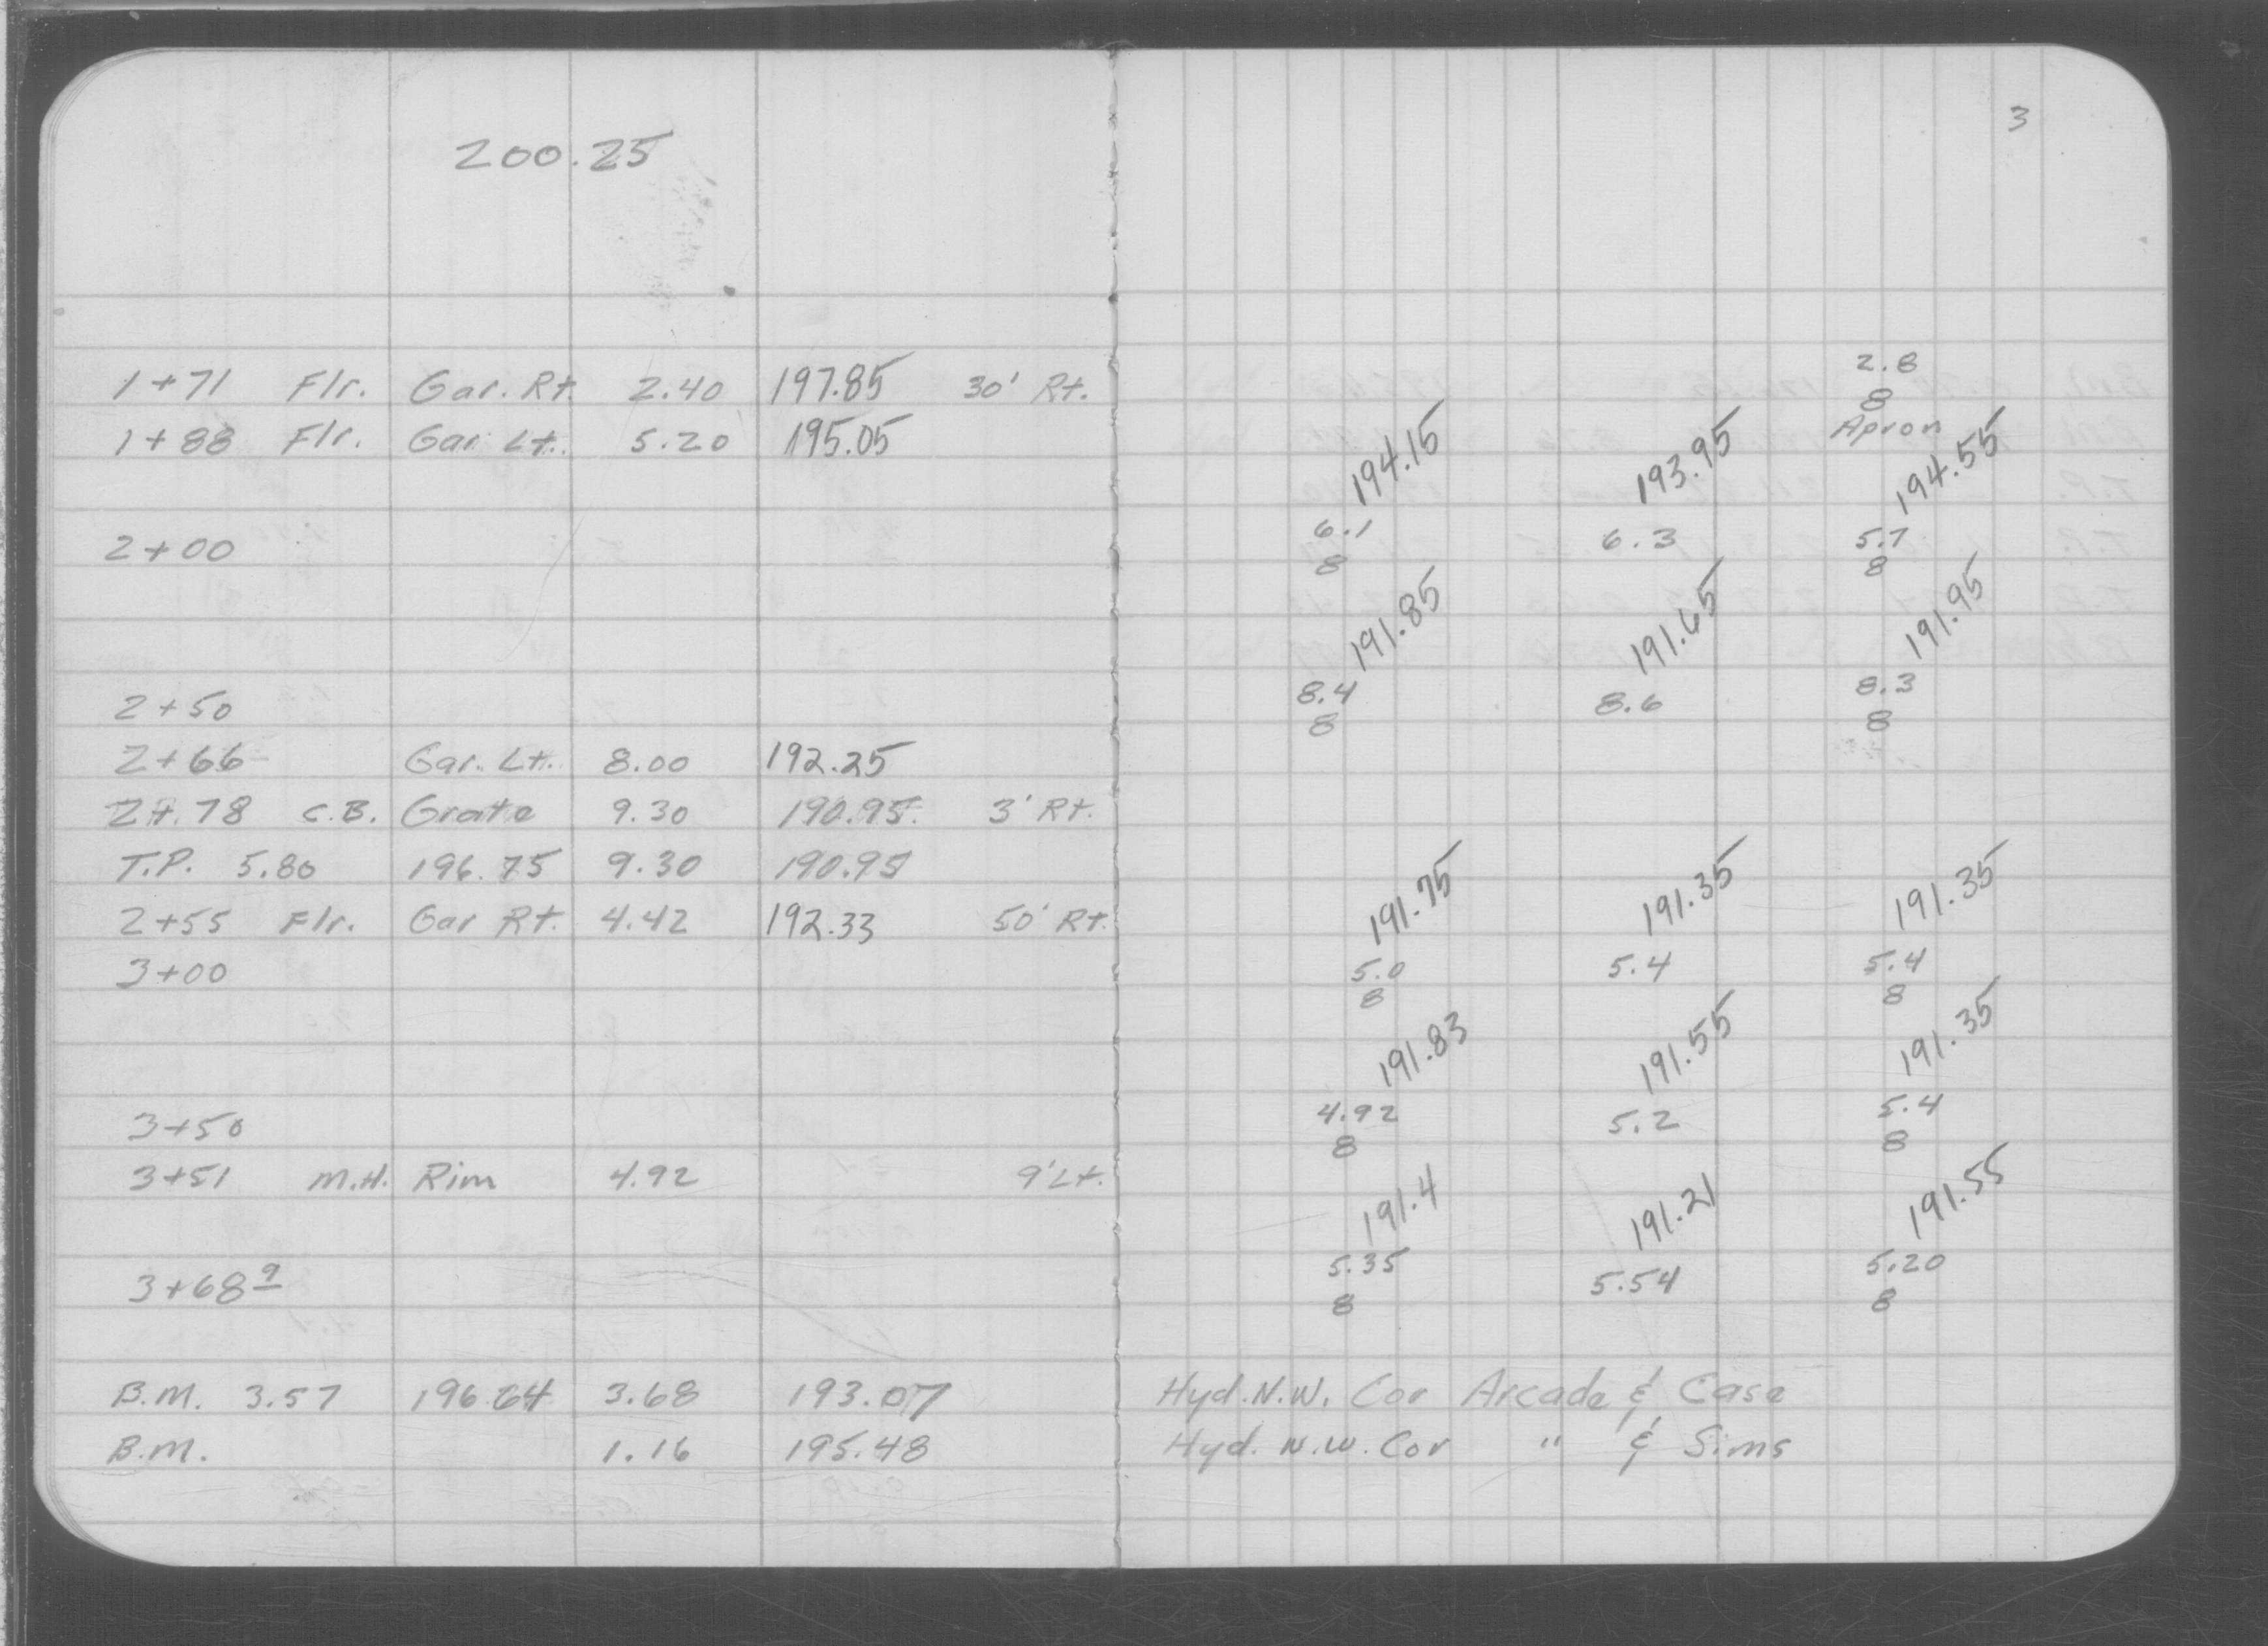 200.25
1+71 Flr. Gar. Rt. 2.40 197.85 30' Rt.
1+88 Flr. Gar. Lt. 5.20 195.05
2+00
2+50
2+66 Gar. Lt. 8.00 192.25
2+78 C.B. Grate 9.30 190.95 3' Rt.
T.P. 5.80 196.75 9.30 190.95
2+55 Flr. Gar Rt. 4.42 192.33 50' Rt.
3+00
3+50
3+51 M.H. Rim 4.92 9' Lt.
3+68 9
B.M. 3.57 196.64 3.68 193.07
B.M. 1.16 195.48
3
2.8
8
Apron
194.15 193.95 194.55
6.1 6.3 5.7
8 8
191.85 191.65 191.95
8.4 8.6 8.3
8 8
191.75 191.35 191.35
5.0 5.4 5.4
8 8
191.83 191.55 191.35
4.92 5.2 5.4
8 8
191.4 191.21 191.55
5.35 5.54 5.20
8 8
Hyd. N.W. Cor Arcade & Case
Hyd. N.W. Cor " & Sims